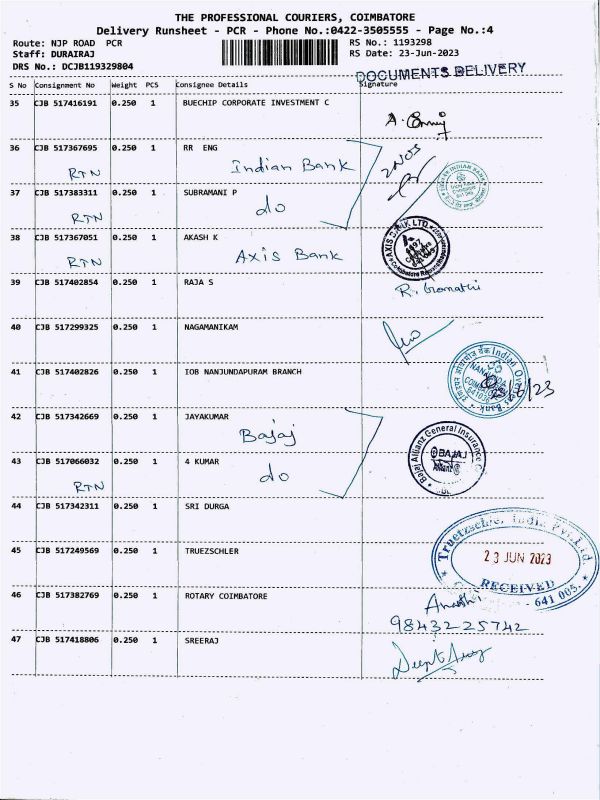 THE PROFESSIONAL COURIERS, COIMBATORE
Delivery Runsheet - PCR - Phone No.:0422-3505555 - Page No.:4
Route: NJP ROAD PCR
RS No.: 1193298
Staff: DURAIRAJ
RS Date: 23-Jun-2023
DRS No.: DCJB119329804
DOCUMENTS DELIVERY
S No Consignment No Weight PCS Consignee Details Signature
35 CJB 517416191 0.250 1 BUECHIP CORPORATE INVESTMENT C
36 CJB 517367695 0.250 1 RR ENG
RTN Indian Bank 2NOS
37 CJB 517383311 0.250 1 SUBRAMANI P
RTN do
38 CJB 517367051 0.250 1 AKASH K
RTN Axis Bank
AXIS BANK LTD.
39 CJB 517402854 0.250 1 RAJA S
R. Gomathi
40 CJB 517299325 0.250 1 NAGAMANIKAM
41 CJB 517402826 0.250 1 IOB NANJUNDAPURAM BRANCH
23/6/23
42 CJB 517342669 0.250 1 JAYAKUMAR
Bajaj
Bajaj Allianz General Insurance
BAJAJ
Allianz
43 CJB 517066032 0.250 1 4 KUMAR
RTN do
44 CJB 517342311 0.250 1 SRI DURGA
45 CJB 517249569 0.250 1 TRUEZSCHLER
Truetzschler India Pvt. Ltd.
23 JUN 2023
RECEIVED
641 005.
46 CJB 517382769 0.250 1 ROTARY COIMBATORE
98432 25742
47 CJB 517418806 0.250 1 SREERAJ